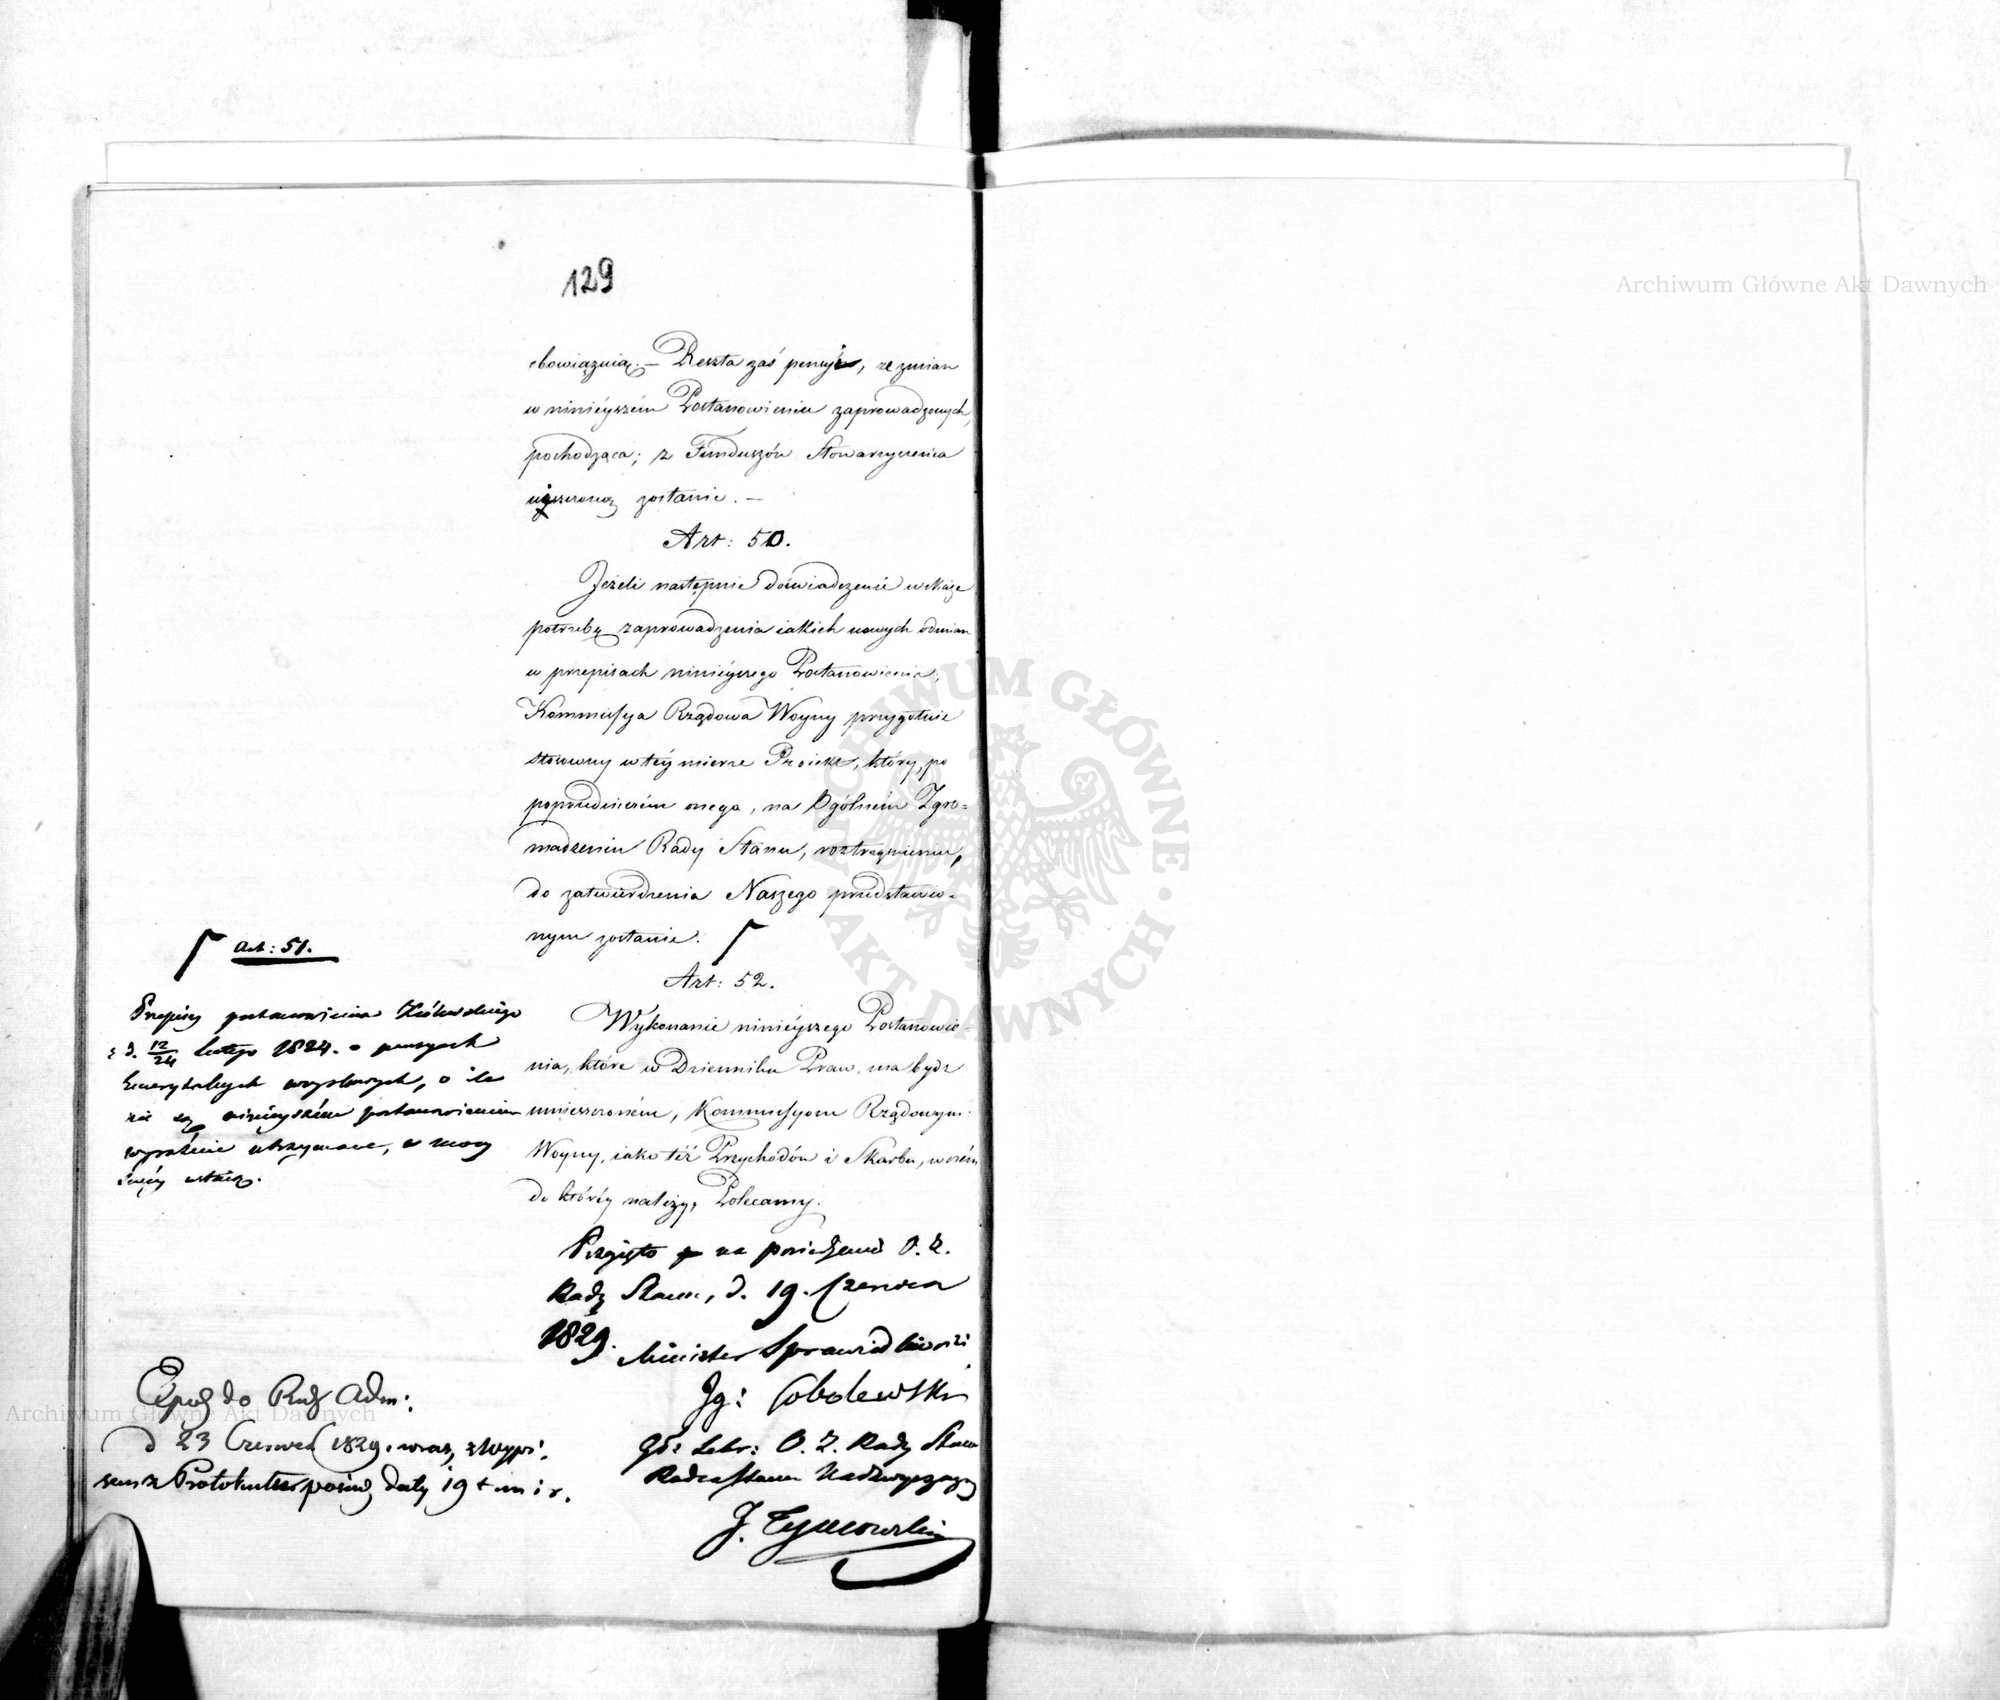 129
obowiązuią. — Reszta zaś pensyi, ze zmian
w ninieyszém Postanowieniu zaprowadzonych,
pochodząca; z Funduszów Stowarzyszenia
uiszczoną zostanie. —
Art: 50.
Jeżeli następnie doświadczenie wskaże
potrzebę zaprowadzenia iakich nowych odmian
w przepisach ninieyszego Postanowienia;
Kommissya Rządowa Woyny przygotuie
stosowny w téy mierze Proiekt, który, po
poprzedniczém onego, na Ogólném Zgro=
madzeniu Rady Stanu, roztrząśnieniu,
do zatwierdzenia Naszego przedstawio-
nym zostanie.
Art: 51.
Przepisy postanowienia Królewskiego
z d. 12/24 lutego 1824. o pensyach
Emerytalnych woyskowych, o ile
nie są ninieyszém postanowieniem
wyraźnie utrzymane, w mocy
swéy ustaią.
Art: 52.
Wykonanie ninieyszego Postanowie-
nia, które w Dzienniku Praw, ma bydź
umieszczoném, Kommissyom Rządowym:
Woyny, iako też Przychodów i Skarbu, w czém
do któréy należy, Polecamy.
Przyięto na posiedzeniu O. Z.
Rady Stanu, d. 19. Czerwca
1829.
Minister Sprawiedliwości
Ig: Sobolewski
Sekr: O. Z. Rady Stanu
Radca Stanu Nadzwyczayny
J. Tymowski
do Rady Adm:
d 23 Czerwca 1829. wraz z wypi-
sem z Protokułu posied. daty 19 t. m i r.
Archiwum Główne Akt Dawnych
Archiwum Główne Akt Dawnych
ARCHIWUM GŁÓWNE · AKT DAWNYCH ·